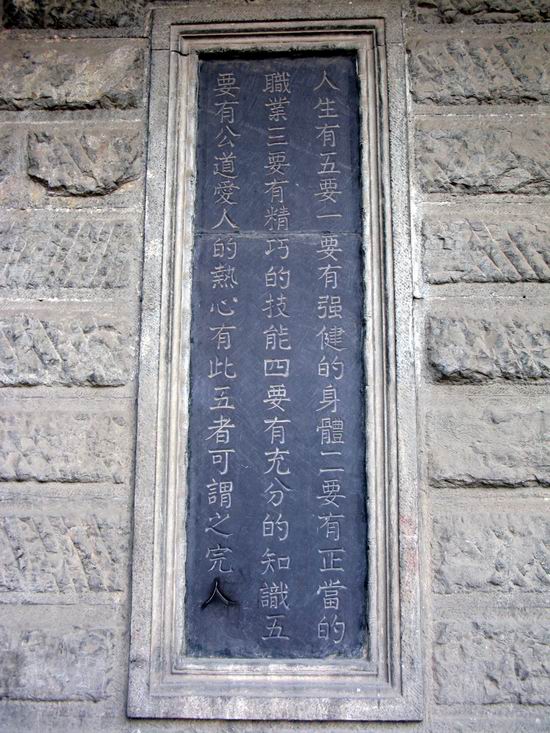 人生有五要一要有强健的身體二要有正當的
職業三要有精巧的技能四要有充分的知識五
要有公道愛人的熱心有此五者可謂之完人